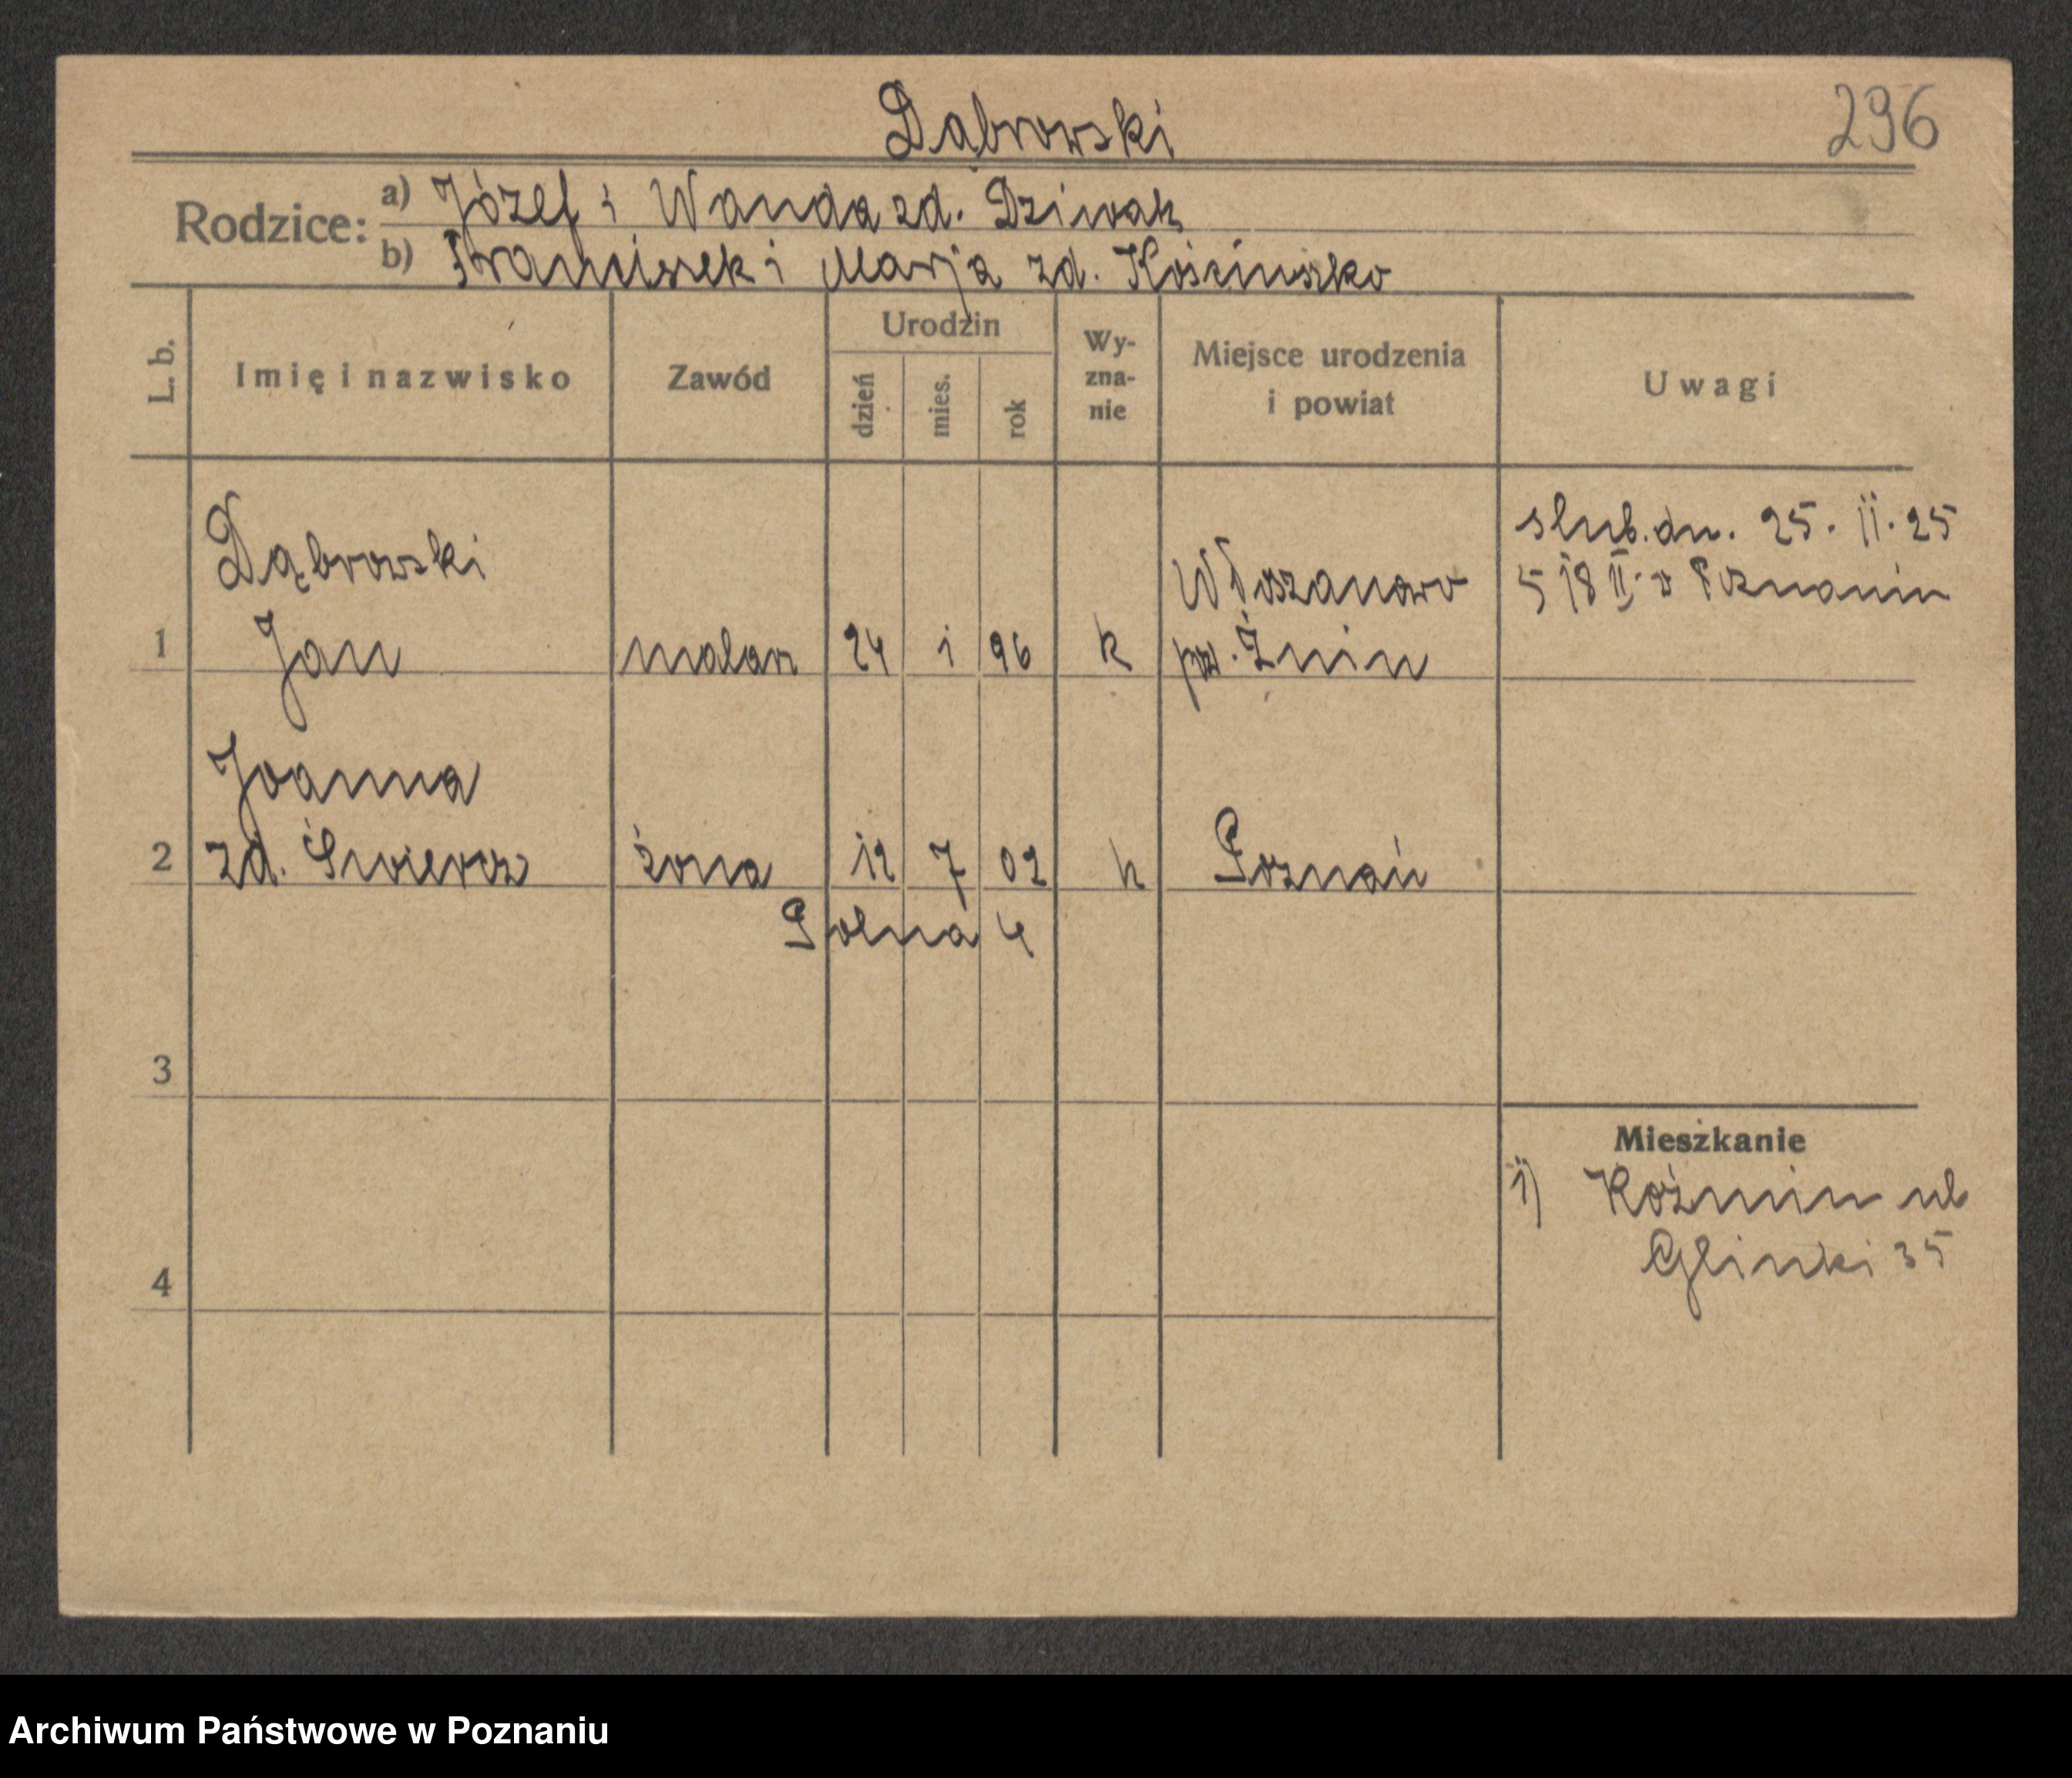 Dąbrowski
296
Rodzice: a) Józef i Wanda zd. Dziwak
b) Franciszek i Marja zd. Kościuszko
L. b.
Imię i nazwisko
Zawód
Urodzin
dzień
mies.
rok
Wy-
zna-
nie
Miejsce urodzenia
i powiat
Uwagi
Dąbrowski
1 Jan malarz 24 i 96 k
Włoszanowo
pow. Żnin
slub. dn. 25. ii. 25
II. w Poznaniu
Joanna
2 zd. Świercz żona 12 7 02 k Poznań
Polna 4
3
4
Mieszkanie
i) Koźmin ul
Glinki 35
Archiwum Państwowe w Poznaniu